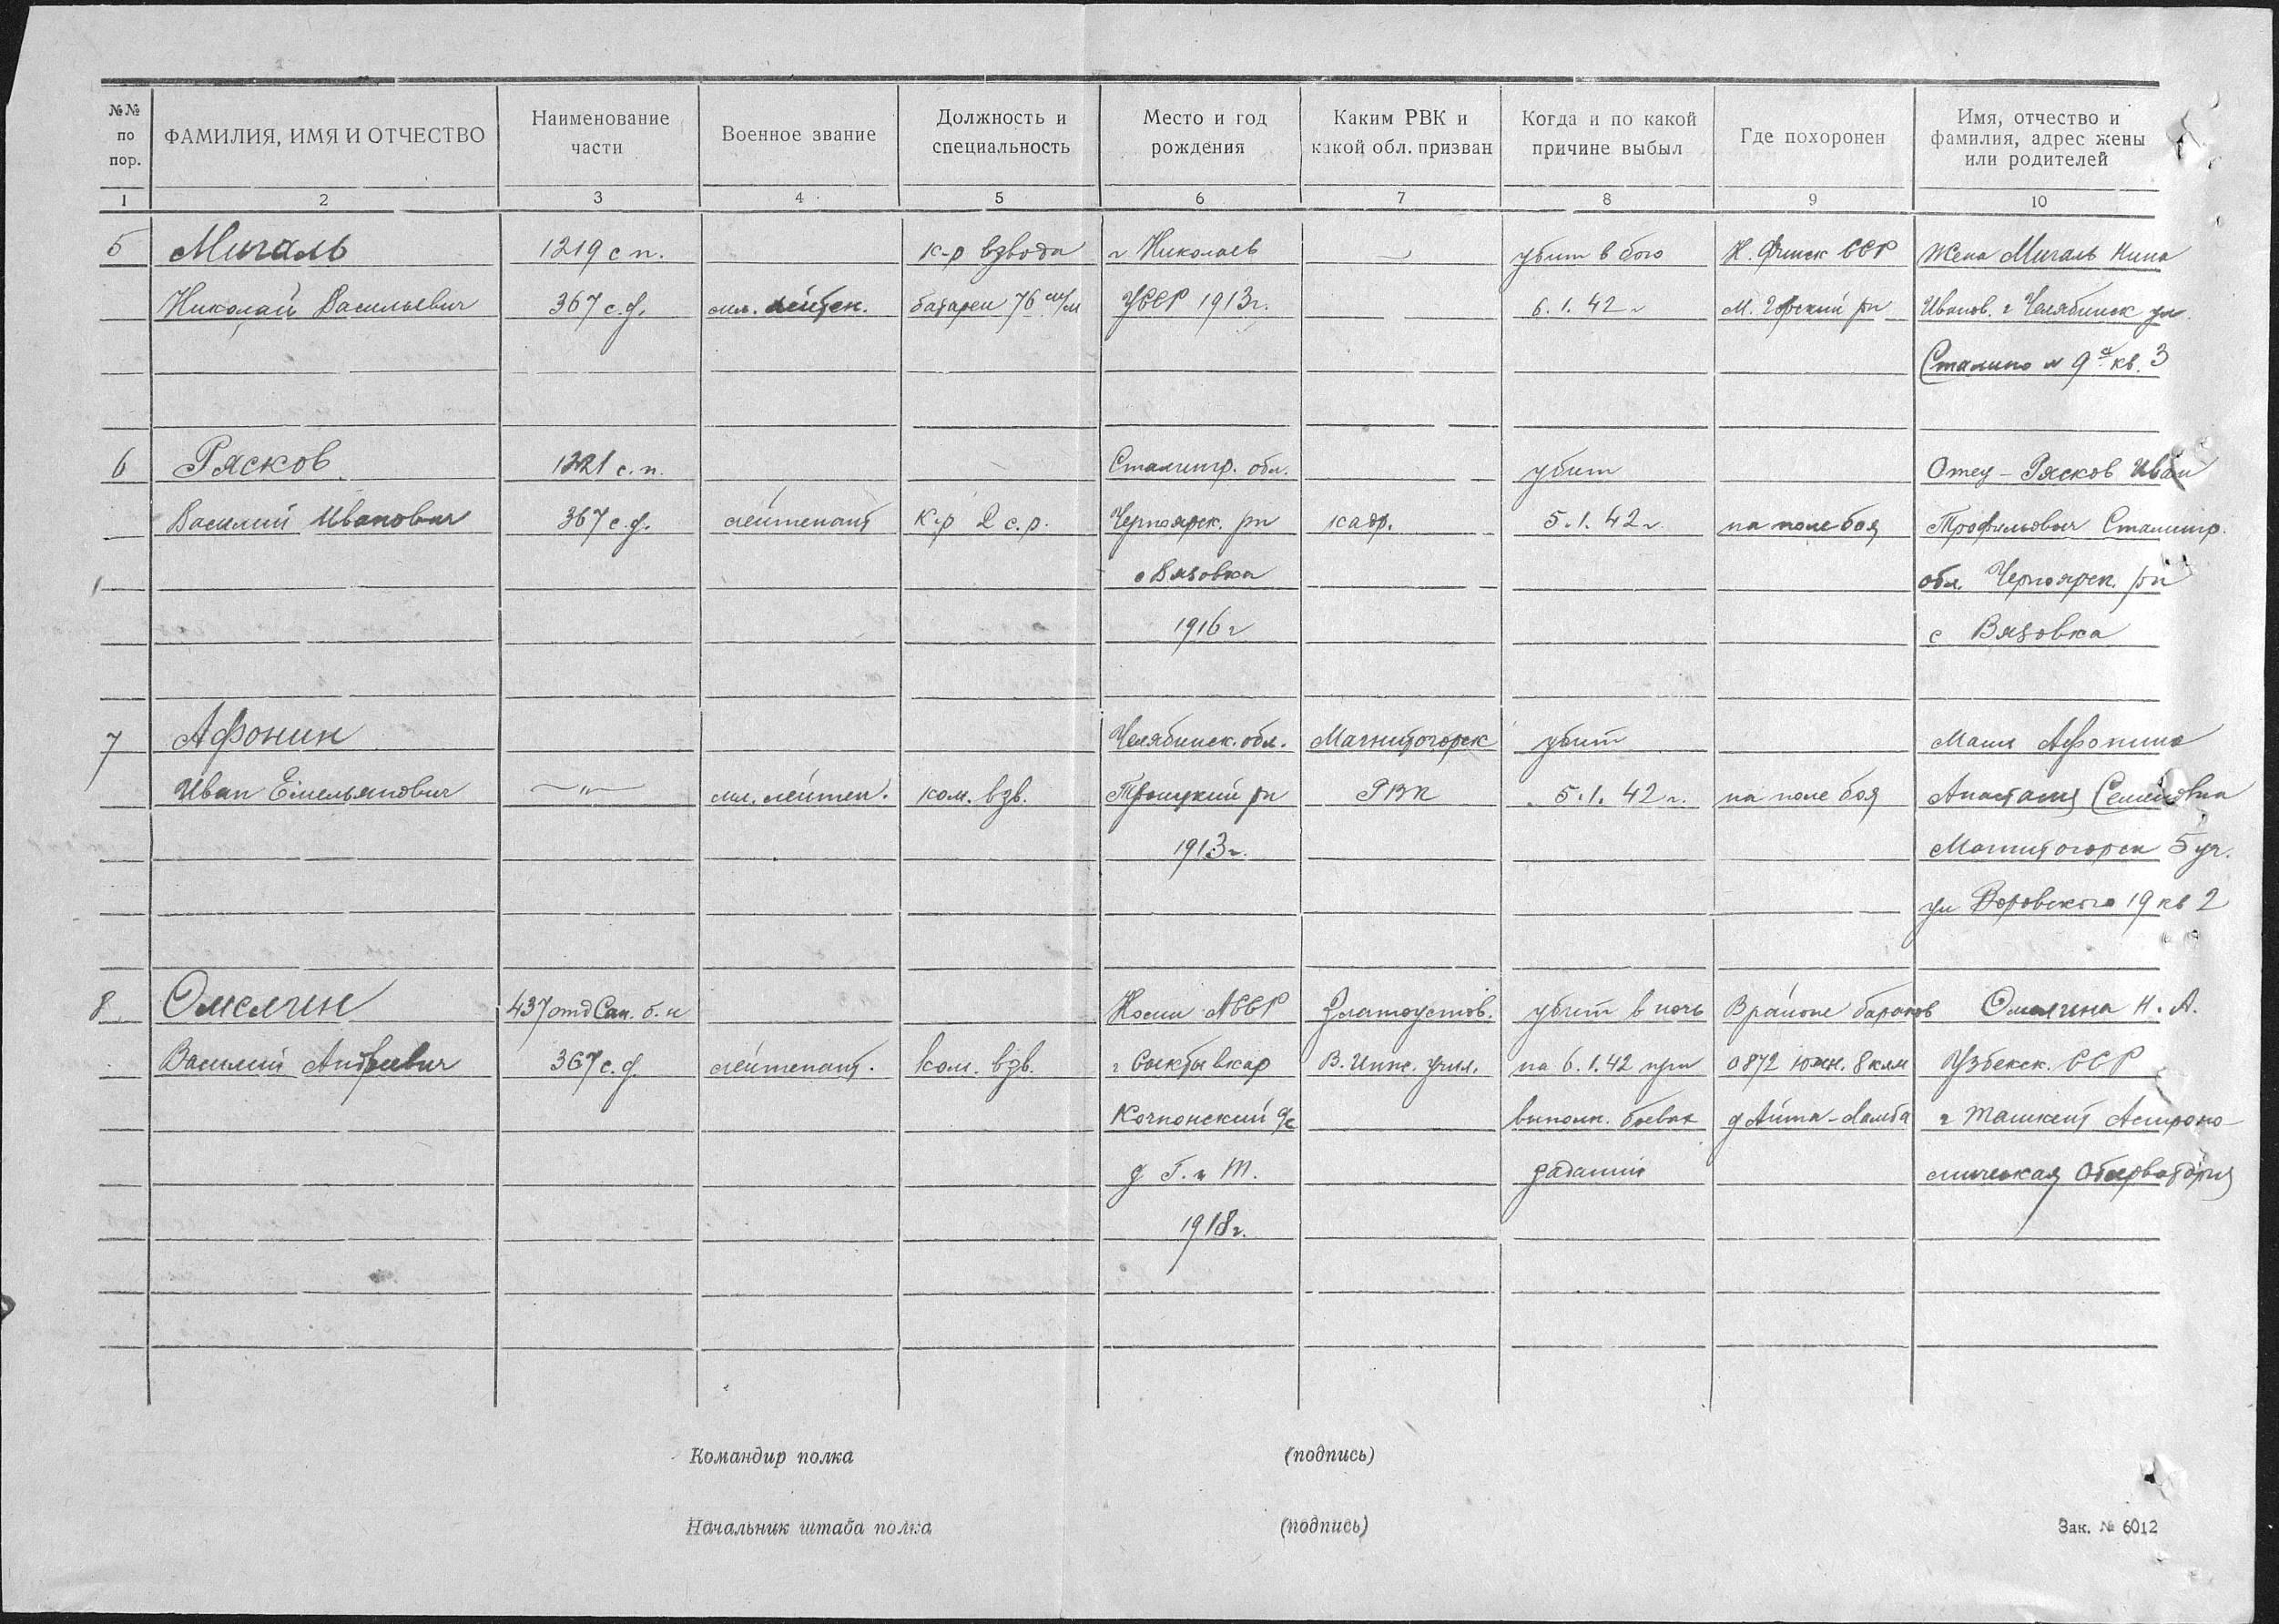 №№ по пор. ФАМИЛИЯ, ИМЯ И ОТЧЕСТВО Наименование части Военное звание Должность и специальность Место и год рождения Каким РВК и какой обл. призван Когда и по какой причине выбыл Где похоронен Имя, отчество и фамилия, адрес жены или родителей
1 2 3 4 5 6 7 8 9 10
5 Мигаль 1219 с п. к-р взвода г Николаев — убит в бою К. Финск ССР Жена Мигаль Нина
Николай Васильевич 367 с.д. мл. лейтен. батареи 76 м/м УССР 1913г. 6.1.42 г М. Горский рн Иванов. г Челябинск ул.
Сталино № 9а кв. 3
6 Рясков 1221 с.п. Сталингр. обл. убит Отец - Рясков Иван
Василий Иванович 367 с.д. лейтенант к-р 2 с.р. Черноярск. рн кадр. 5.1.42 г на поле боя Трофимович Сталингр.
с Вязовка обл. Черноярск. рн
1916 г с Вязовка
7 Афонин Челябинск. обл. Магнитогорск убит Мать Афонина
Иван Емельянович —"— мл. лейтен. ком. взв. Троицкий рн РВК 5.1.42 г. на поле боя Анастасия Семеновна
1913г. Магнитогорск 5 уч.
ул Воровского 19 кв 2
8 Омелчин 437 отд Сап. б-н Коми АССР Златоустов. убит в ночь В районе бараков Омелчина Н. А.
Василий Андреевич 367 с.д. лейтенант. ком. взв. г Сыктывкар В. Инж. учил. на 6.1.42 при 0872 южн. 8 клм Узбекск. ССР
Кочпонский с/с выполн. боевых д Айта-Ламба г Ташкент Астроно-
д Г. и Т. заданий мическая Обсерватория
1918г.
Командир полка (подпись)
Начальник штаба полка (подпись)
Зак. № 6012